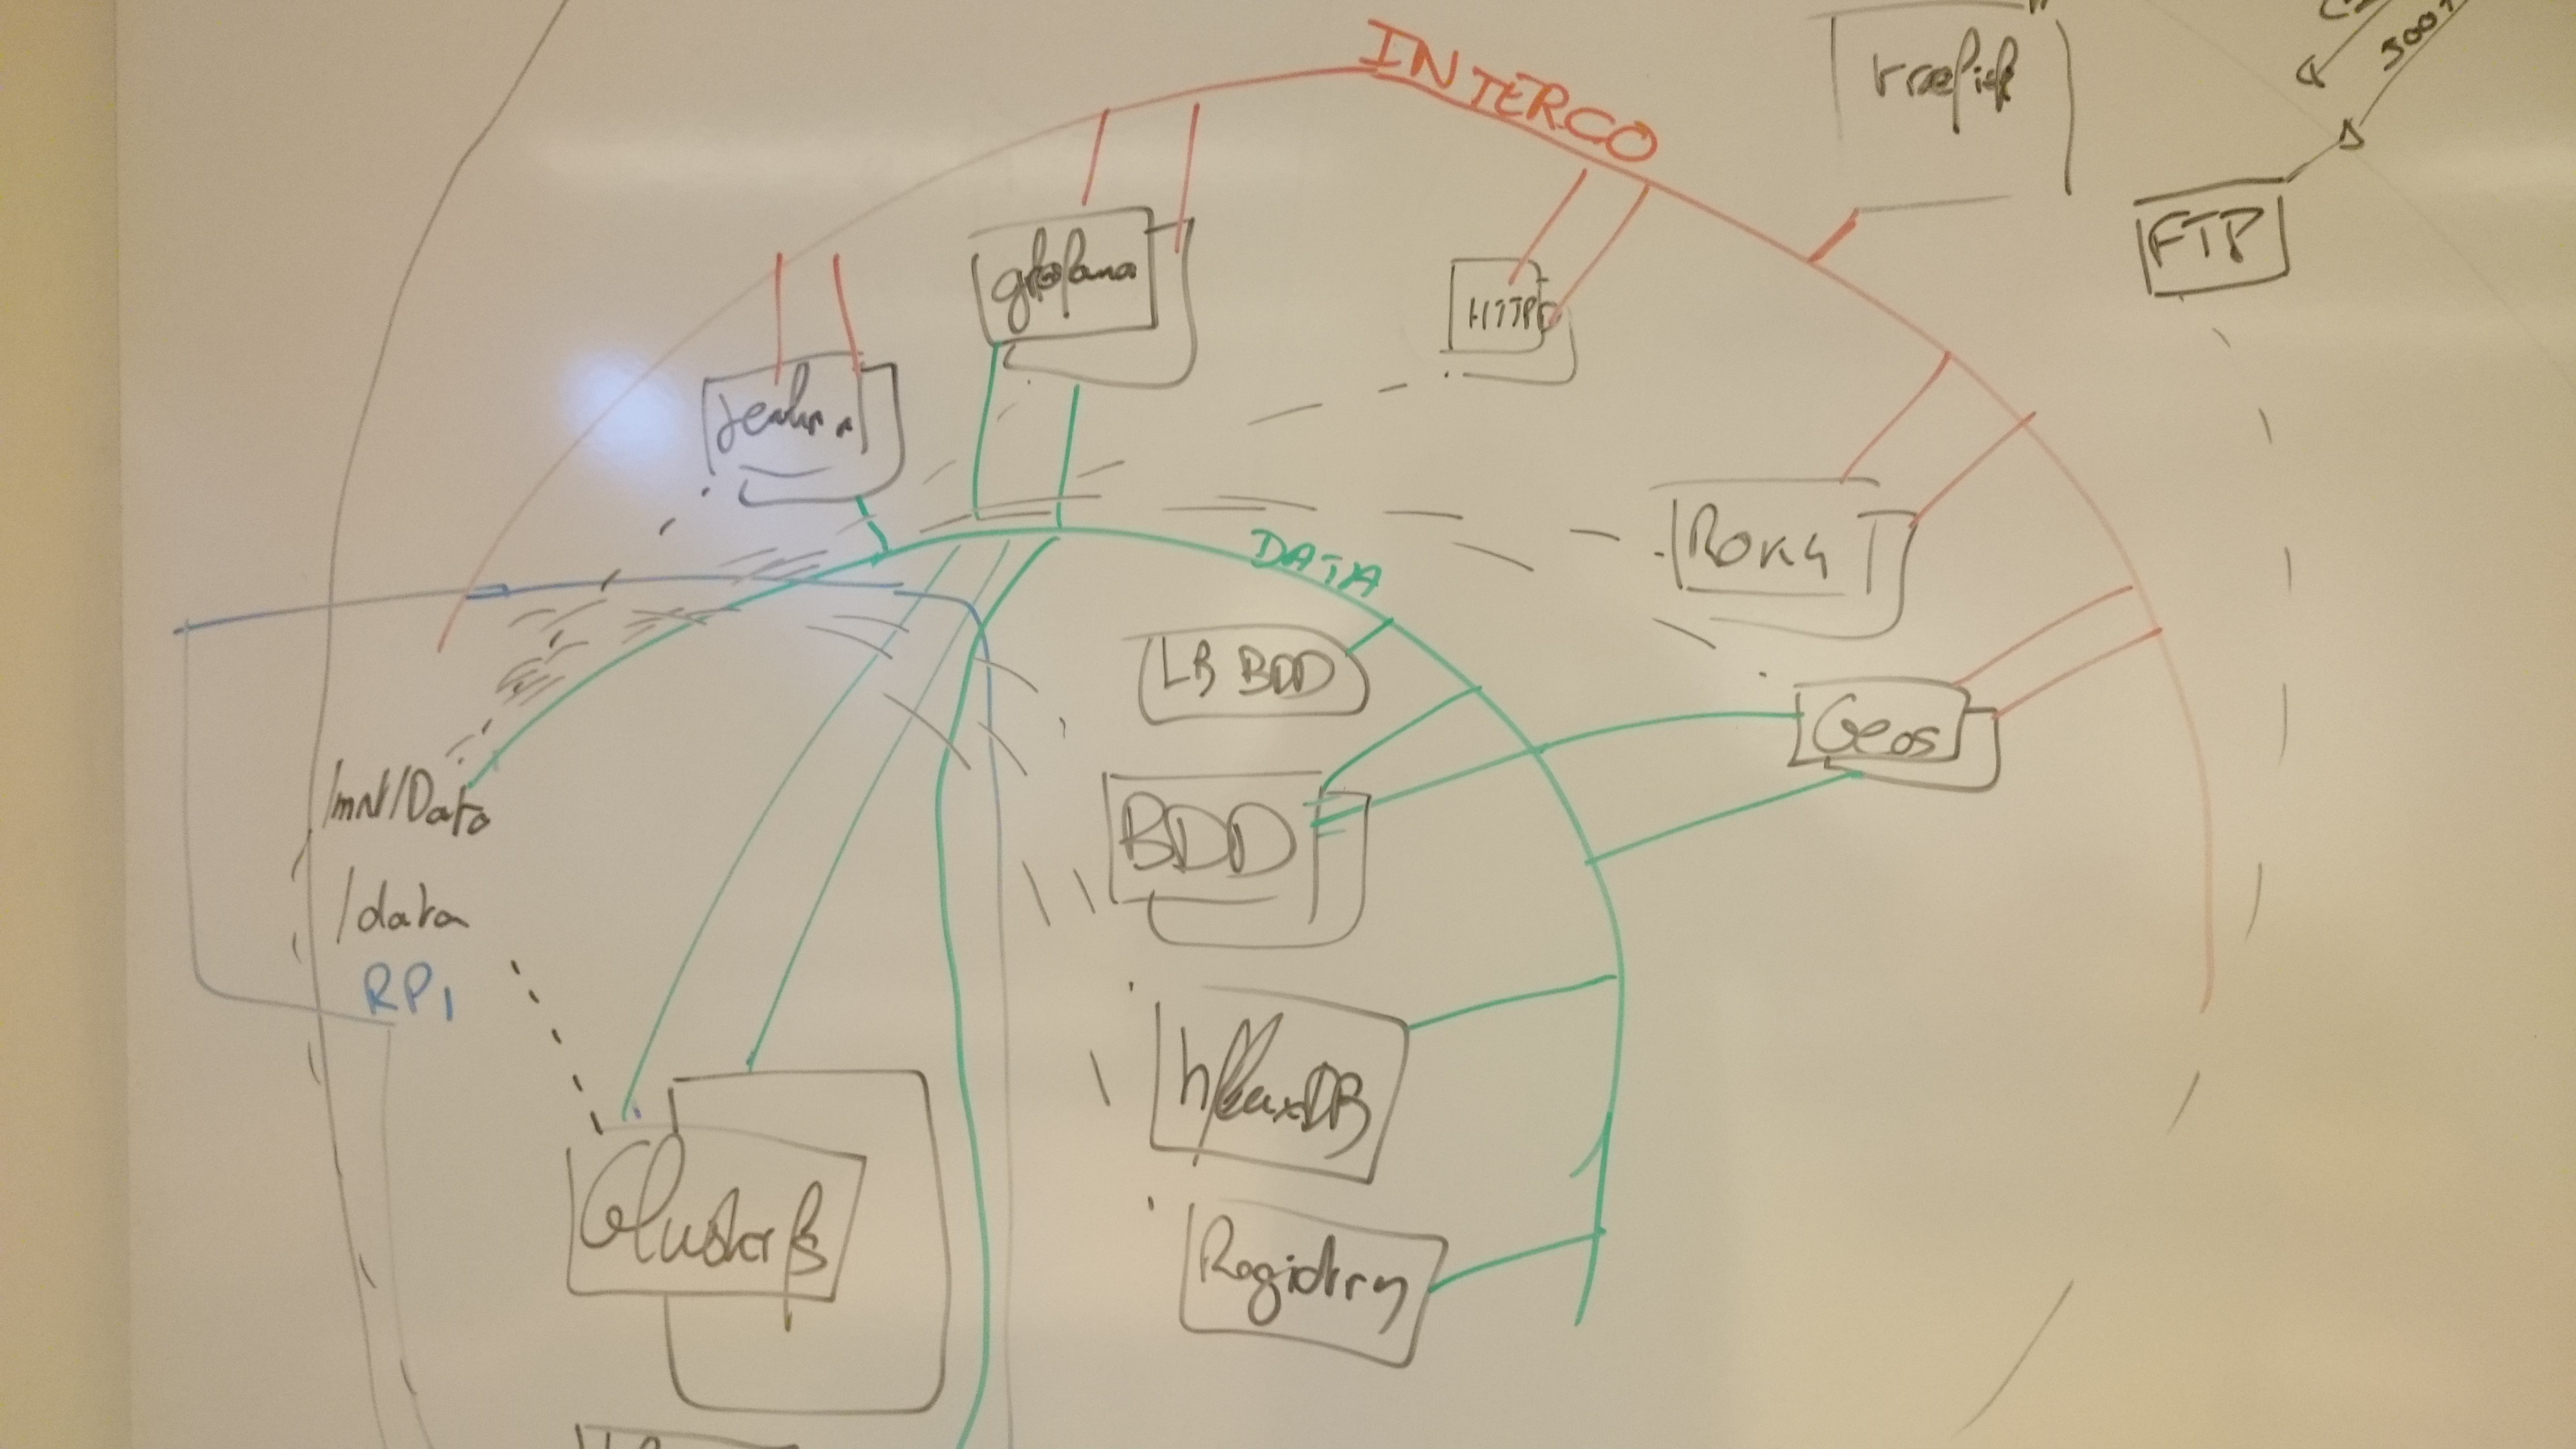 INTERCO
traefik
FTP
grafana
HTTPD
Jenkins
ROK4
DATA
LB BDD
Geos
/mNT/Data
BDD
/data
RP1
InfluxDB
Glusterfs
Registry